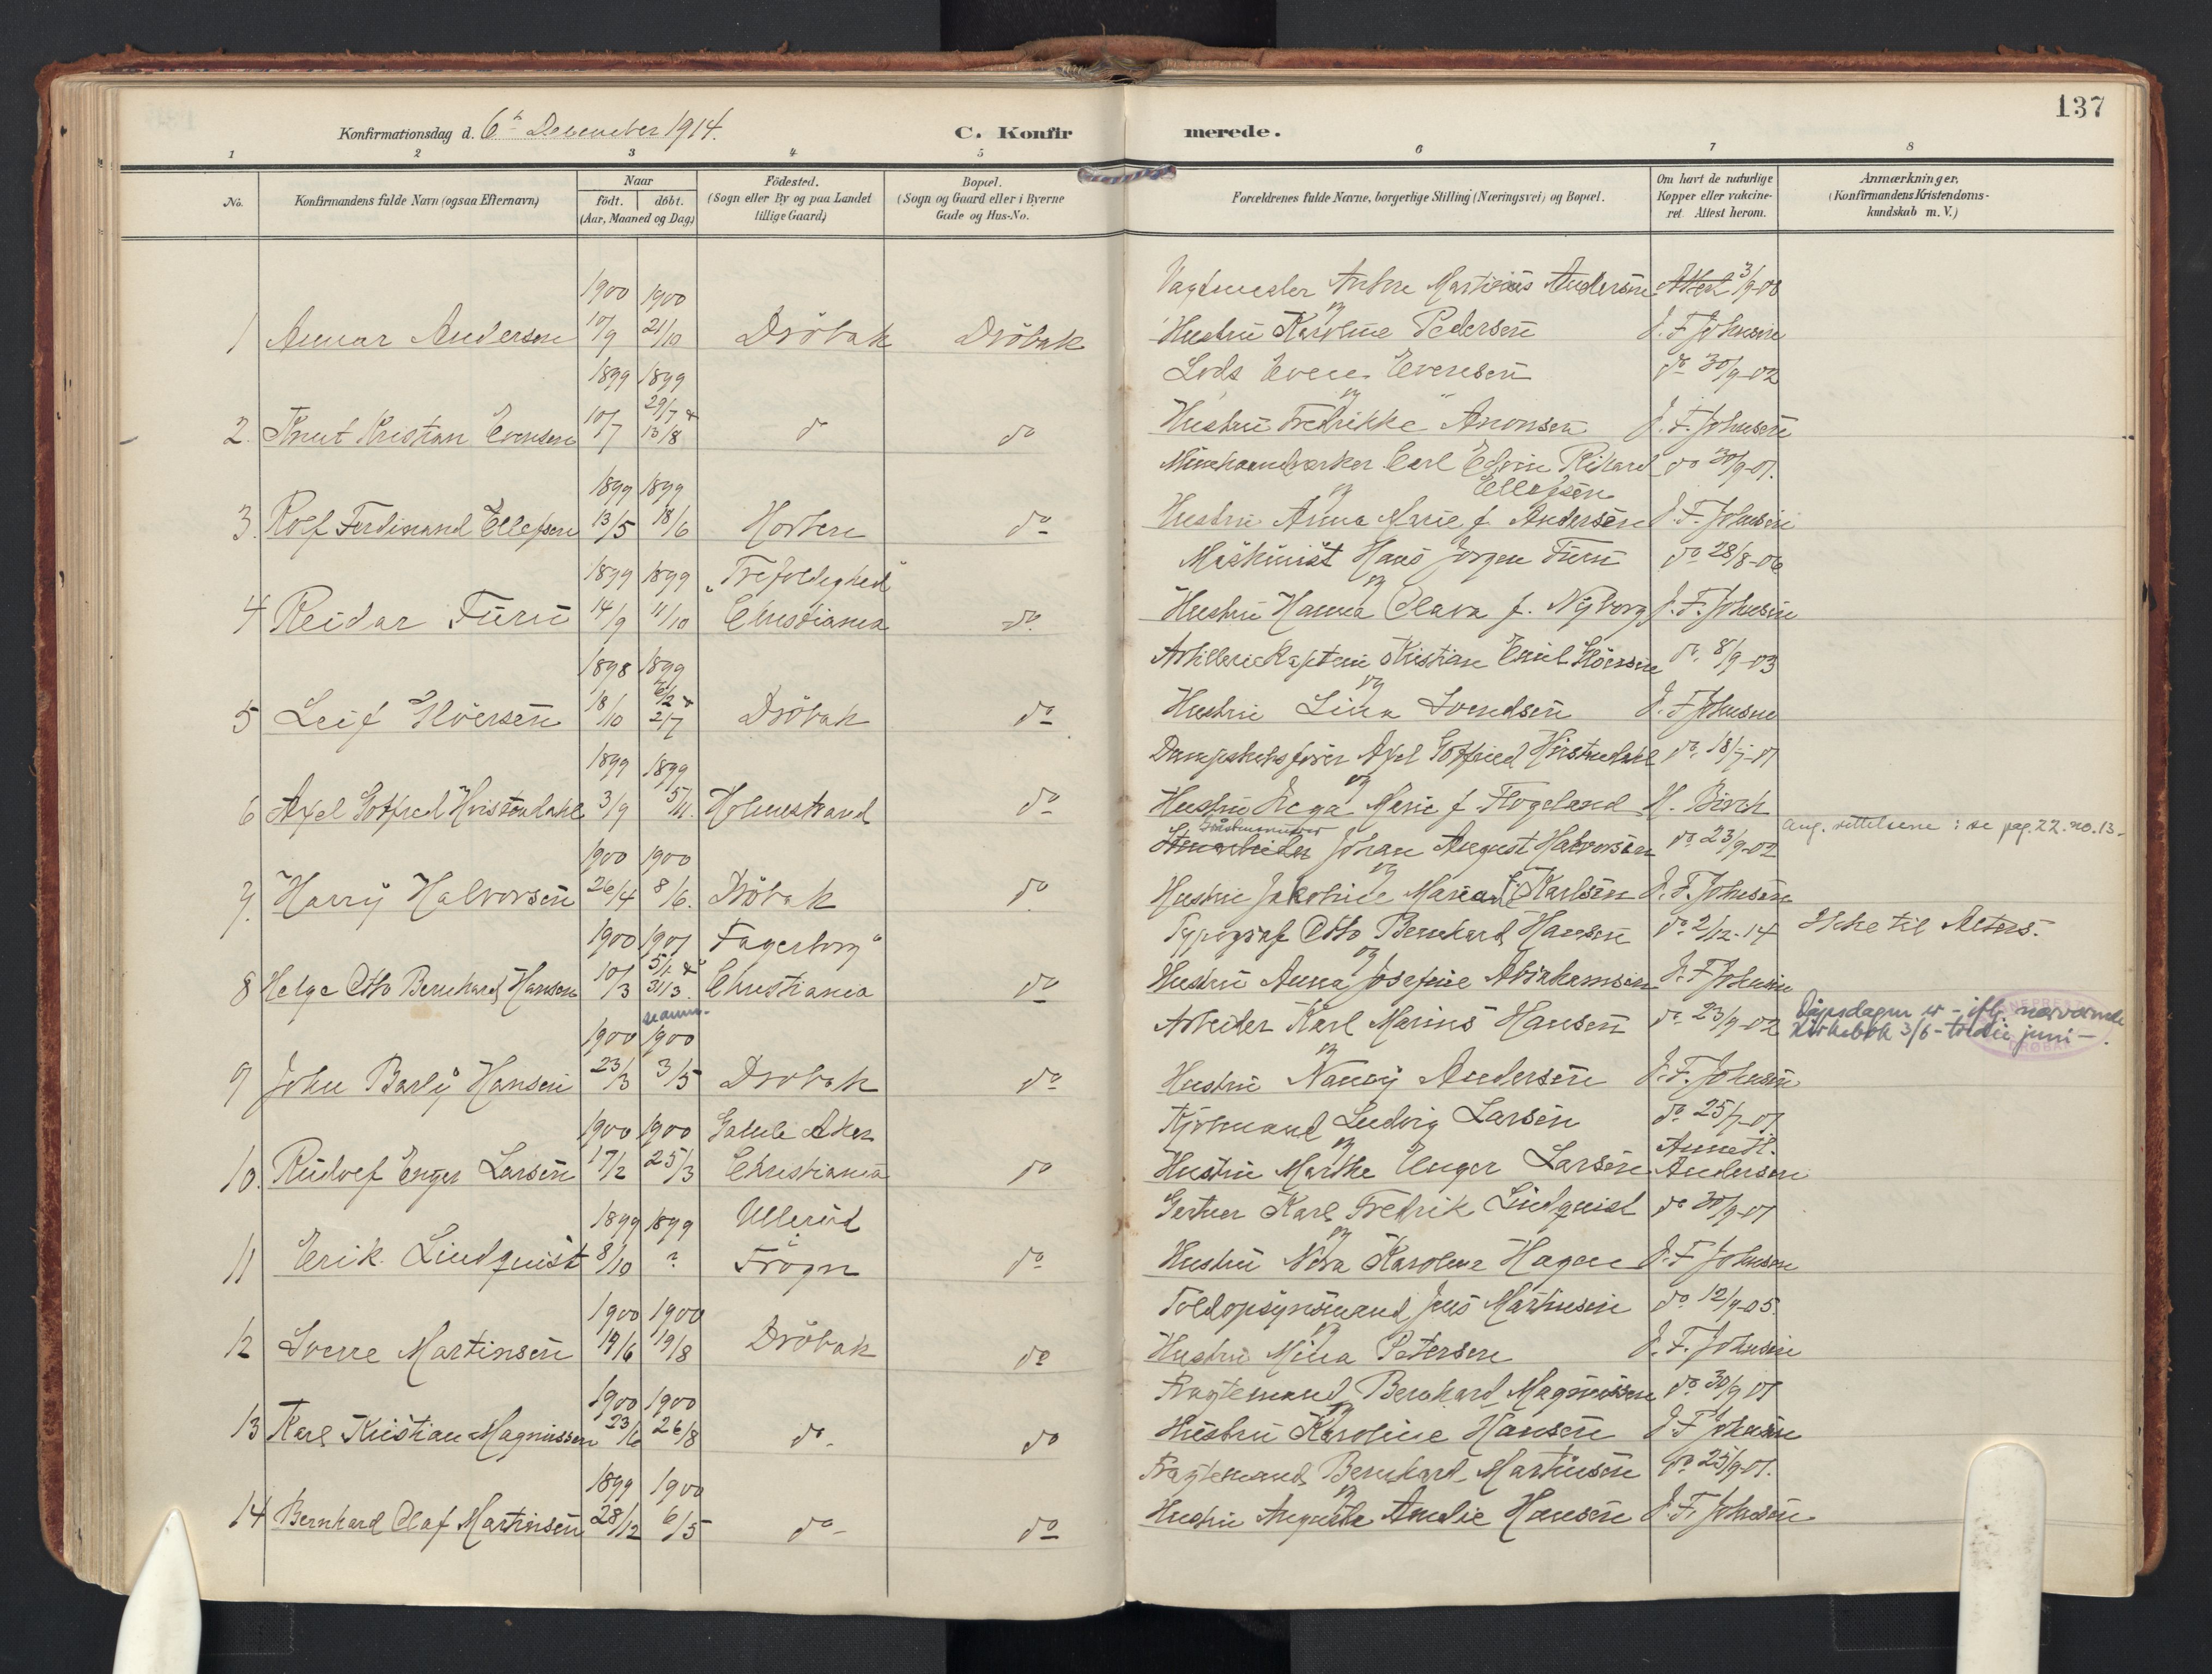 137
Konfirmationsdag d. 6te December 1914.
C. Konfirmerede.
1 2 3 4 5 6 7 8
No.
Konfirmandens fulde Navn (ogsaa Efternavn)
Naar
födt. döbt.
(Aar, Maaned og Dag)
Födested.
(Sogn eller By og paa Landet
tillige Gaard)
Bopæl.
(Sogn og Gaard eller i Byerne
Gade og Hus-No.
Forældrenes fulde Navne, borgerlige Stilling (Næringsvei) og Bopæl.
Om havt de naturlige
Kopper eller vakcine-
ret. Attest herom.
Anmærkninger,
(Konfirmandens Kristendoms-
kundskab m. V.)
1900 1900 Vagtmester Martinius Andersen Attest 3/9-00
1 Andersen 10/9 21/10 Dröbak Dröbak og Hustru Karoline Pedersen J. F. Johnsen
1899 1899 Lods Even Evensen do 30/9-02
2. Knut Kristian Evensen 10/7 29/7 & 13/8 do do og Hustru Fredrikke Aronsen J. F. Johnsen
1899 1899 Minehaandverker Carl Edvin Rikard Ellefsen do 30/9-01.
3. Rolf Ferdinand Ellefsen 13/5 18/6 Horten do og Hustru Anna Marie f. Andersen J. F. Johnsen
1899 1899 "Trefoldighed" Maskinist Hans Jørgen Furu do 28/8-06
4 Reidar Furu 14/9 11/10 Christiania do. og Hustru Hanna Olava f. Nyborg J. F. Johnsen
1898 1899 Artillerikaptein Kristian Emil Gløersen do. 8/9-03
5 Leif Gløersen 18/10 6/2 & 2/7 Dröbak do og Hustru Lina Svendsen J. F. Johnsen
1899 1899 Dampskibsfører Axel Gotfried Hvistendahl do. 18/7-01
6 Axel Gotfred Hvistendahl 3/9 5/11. Holmestrand do og Hustru Marie f. Hogeland H. Birch
ang. rettelsene : se pag. 22. no. 13.
1900 1900 Johan August Halvorsen do 23/9-02
7. Harry Halvorsen 26/4 8/6. Dröbak do og Hustru Jakobine Maria Karlsen J. F. Johnsen
1900 1901 "Fagerborg" Typograf Otto Bernhard Hansen do. 2/12-14 Ikke til Alters.
8 Helge Otto Bernhard Hansen 10/3 5/1 & 31/3. Christiania do og Hustru Anna Josefine Abrahamsen J. F. Johnsen
se anm.
1900 1900 Arbeider Karl Marius Hansen do 23/9-02 Dåpsdagen er - iflg. nærværende
kirkebok 3/6 - tredie juni - .
9 John Barly Hansen 23/3 3/5 Dröbak do og Hustru Nancy Andersen J. F. Johnsen
1900 1900 Gamle Aker Kjøbmand Ludvig Larsen do 25/7-01
10. Rudolf Enger Larsen 17/2 25/3 Christiania do og Hustru Marthe Enger Larsen Anne H. Andersen
1899 1899 Ullerud Gartner Karl Fredrik Lindquist do 30/9-01
11 Erik Lindquist 8/10 ? Frogn do og Hustru Nora Karoline Hagen J. F. Johnsen
1900 1900 Toldopsynsmand Jens Martinsen do 12/9-05.
12 Sverre Martinsen 19/6 19/8 Dröbak do og Hustru Mina Petersen J. F. Johnsen
1900 1900 Fragtemand Bernhard Magnussen do 30/9 01
13 Karl Kristian Magnussen 23/6 26/8 do. do og Hustru Karoline Hansen J. F. Johnsen
1899 1900 Fragtemand Bernhard Martinsen do 25/9-01.
14 Bernhard Olaf Martinsen 28/12 6/5 do- do og Hustru Augusta Amalie Hansen J. F. Johnsen